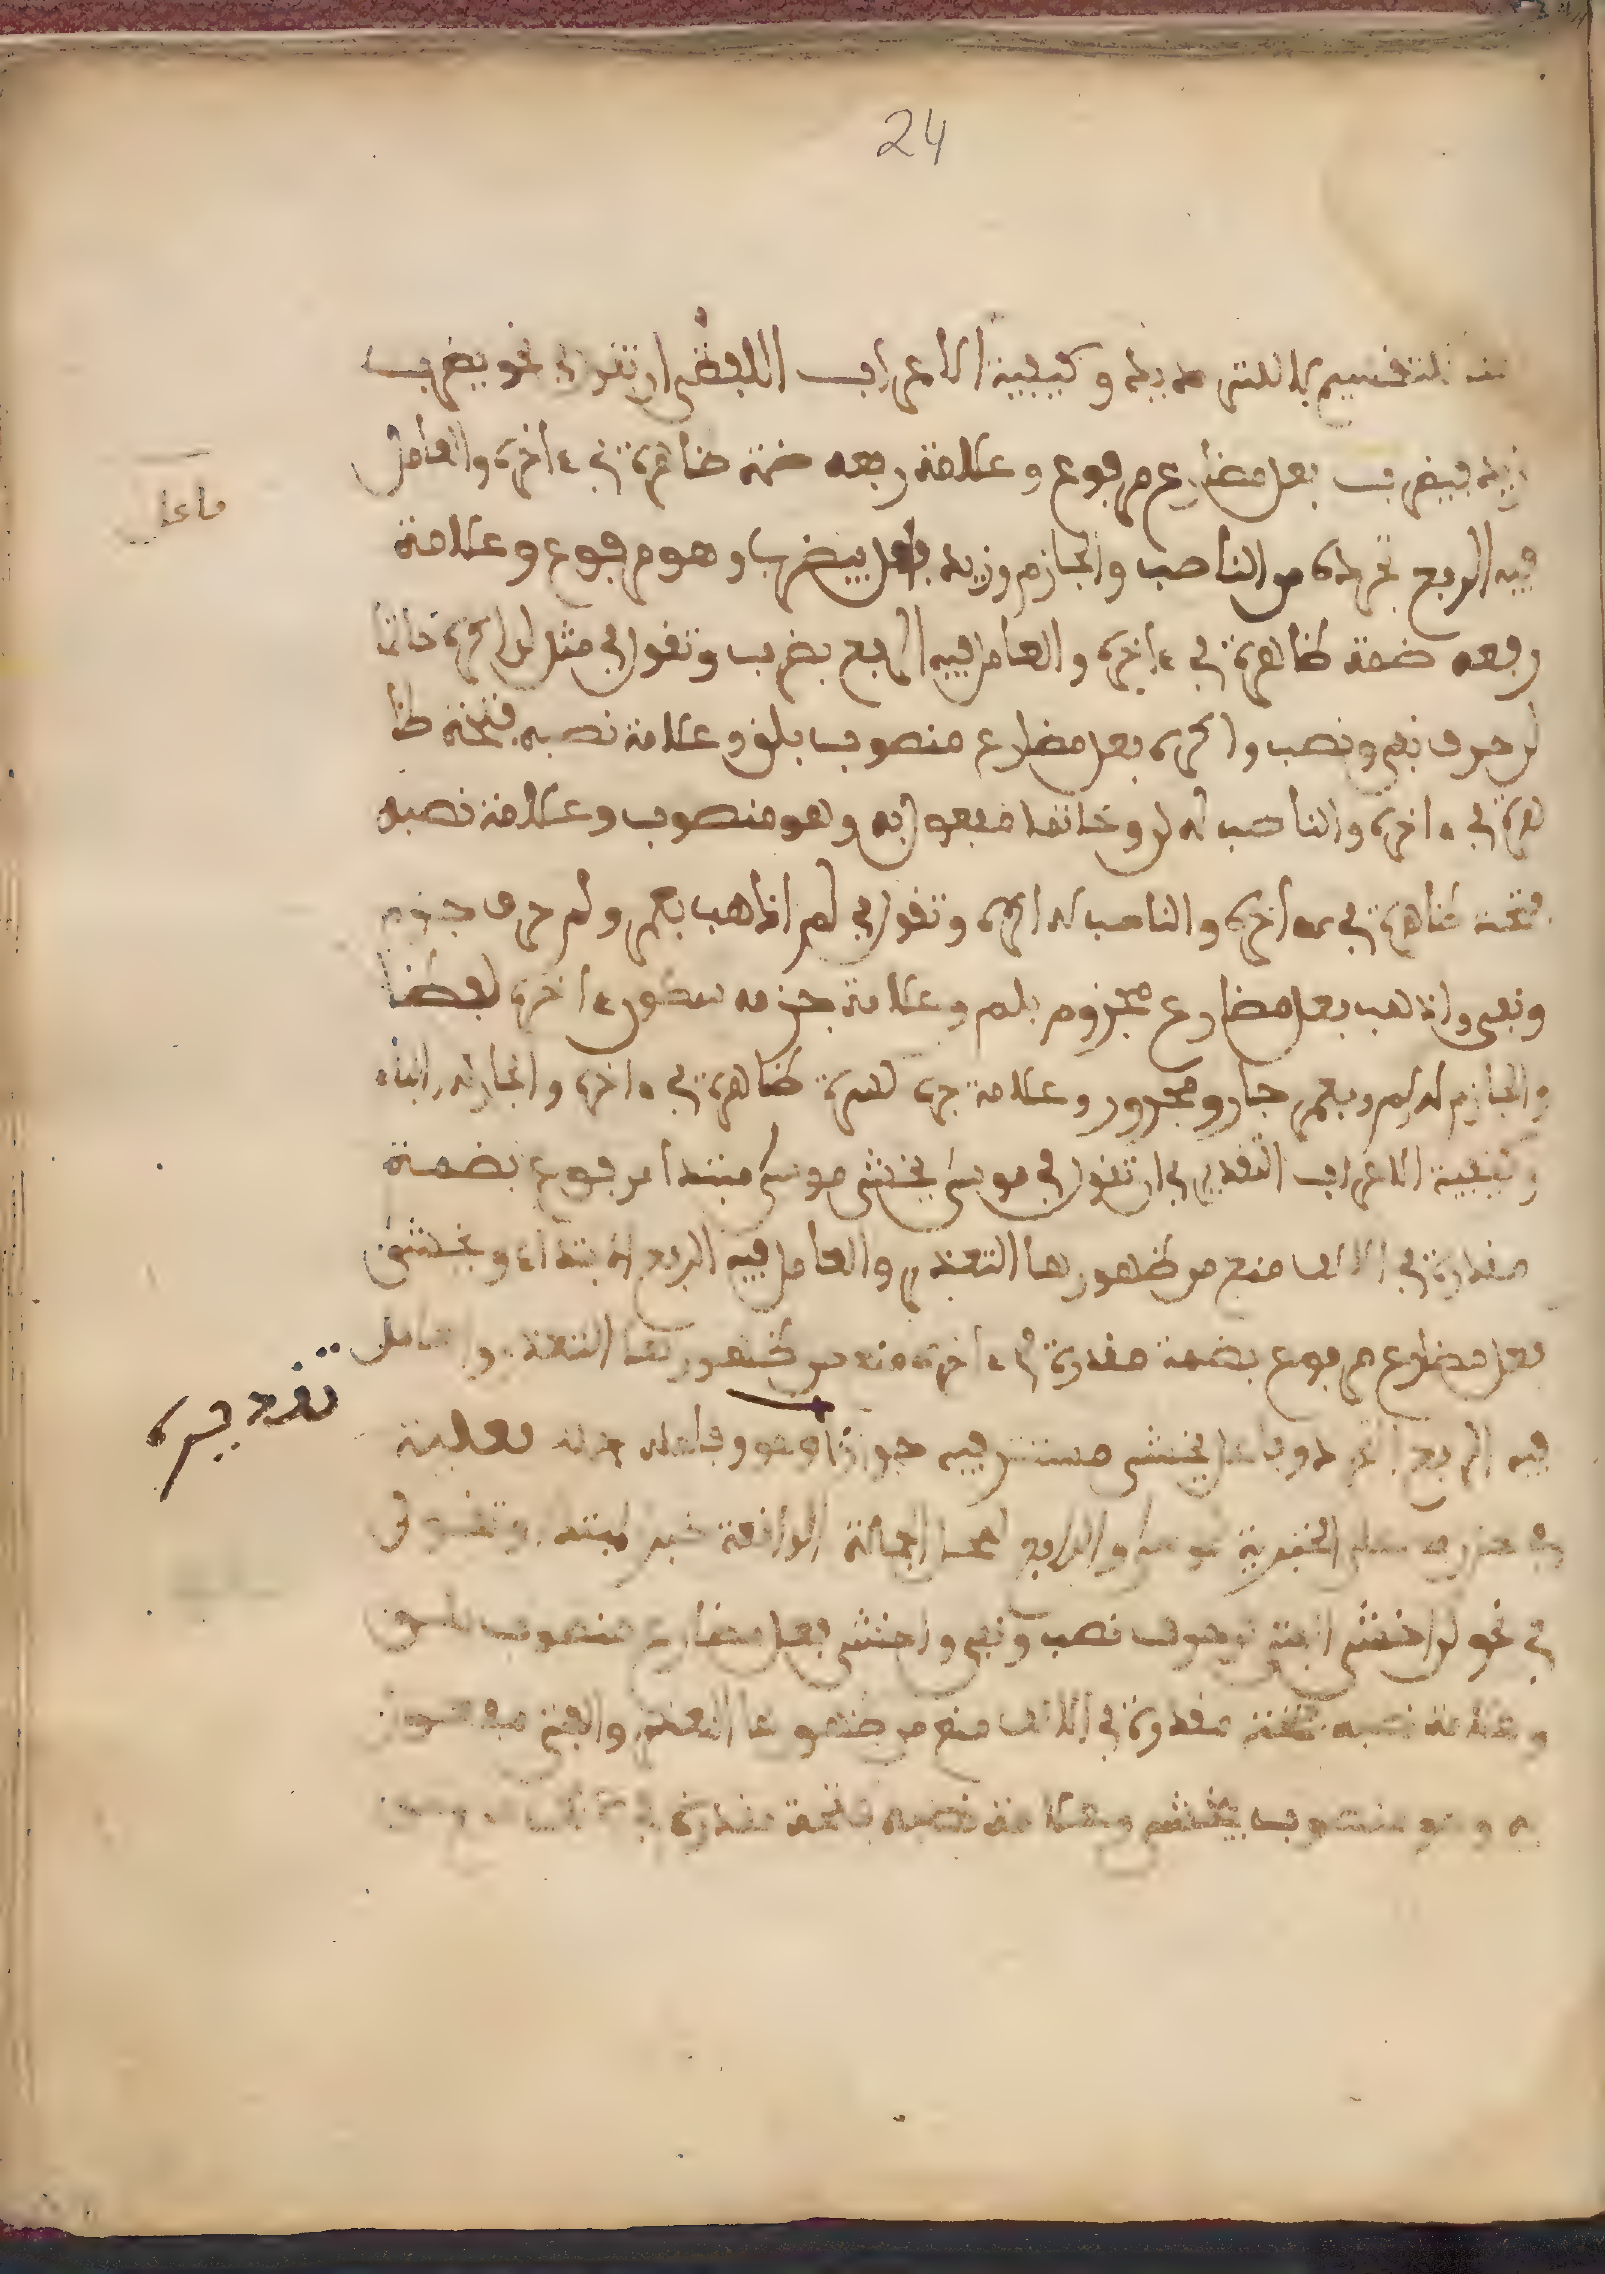 24
التقسيم لا للترديد وكيفية الاعراب اللفظي ان تقول في نحو يضرب
زيد فيضرب فعل مضارع مرفوع وعلامة رفعه ضمة ظاهرة في ءاخره والعامل
فيه الرفع تجرده من الناصب والجازم وزيد فاعل بيضرب وهو مرفوع وعلامة
رفعه ضمة ظاهرة في ءاخره والعامل فيه الرفع يضرب وتقول في مثل لن اكره حاتما
لن حرف نفي ونصب واكره فعل مضارع منصوب بلن وعلامة نصبه فتحة ظا
هرة في ءاخره والناصب له لن وحاتما مفعول به وهو منصوب وعلامة نصبه
فتحة ظاهرة في ءاخره والناصب له اكره وتقول في لم اذهب بعمرو لم حرف جزم
ونفي واذهب فعل مضارع مجزوم بلم وعلامة جزمه سكون ءاخره لفظا
والجازم له لم وبعمرو جار ومجرور وعلامة جره كسرة ظاهرة في ءاخره والجار له الباء
وكيفية الاعراب التقديري ان تقول في موسى يخشى موسى مبتدا مرفوع بضمة
مقدرة في الالف منع من ظهورها التعذر والعامل فيه الرفع الابتداء ويخشى
فعل مضارع مرفوع بضمة مقدرة في ءاخره منع من ظهورها التعذر والعامل
فيه الرفع التجرد وفاعل يخشى مستتر فيه جوازا وهو وفاعله جملة فعلية
في موضع رفع على الخبرية لموسى والرافع لمحل الجملة الواقعة خبر المبتدا وتقول
في نحو لن اخشى الفتى لن حرف نصب ونفي واخشى فعل مضارع منصوب بلن
وعلامة نصبه فتحة مقدرة في الالف منع من ظهورها التعذر والفتى مفعول
به وهو منصوب بيخشى وعلامة نصبه فتحة مقدرة في الالف
فاعل
تقديره